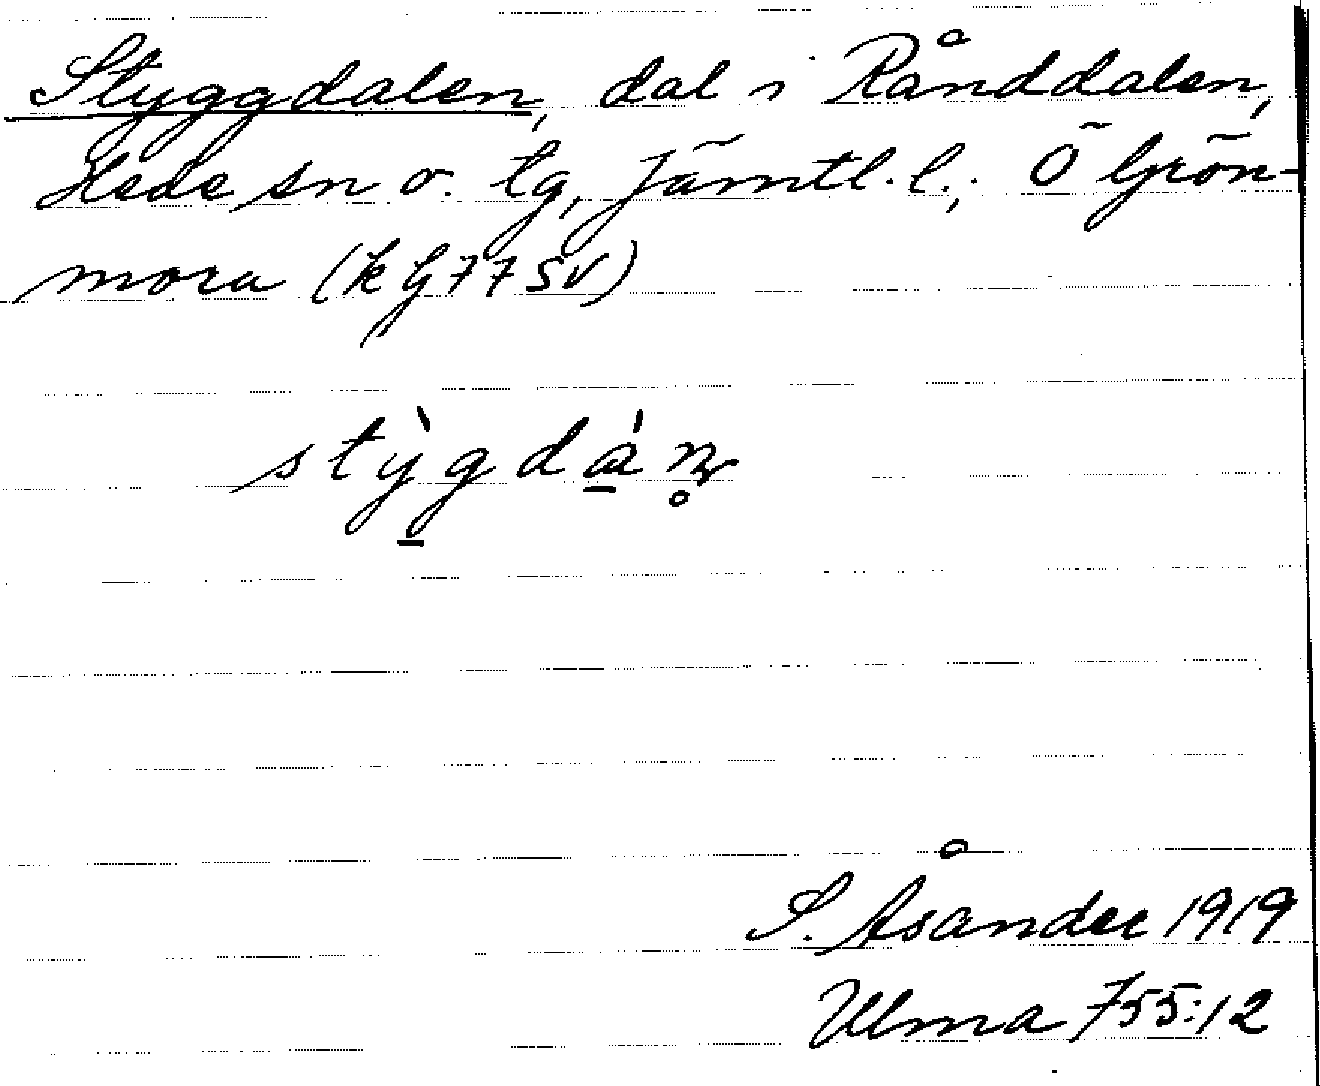 Styggdalen, dal i Rånddalen,
Hede sn o. tg, Jämtl. l.; Ö Grön-
mora (kG77SV)
stỳ̱gdá̱n̥
S. Åsander 1919
Ulma 755:12